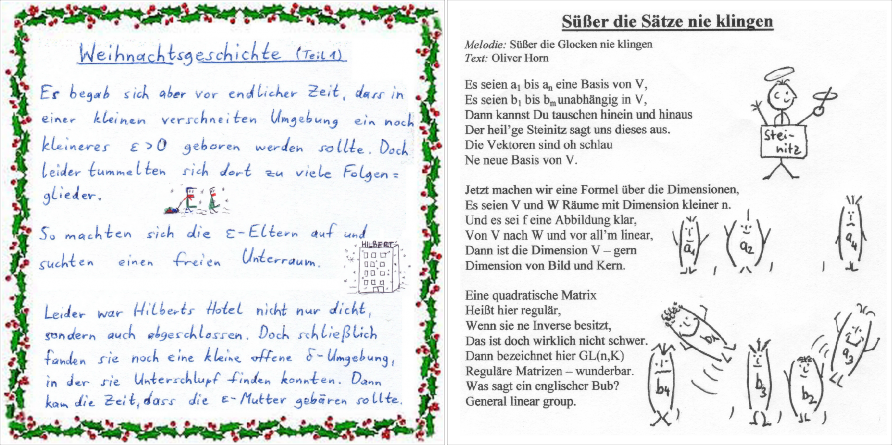 Weihnachtsgeschichte (Teil 1)
Es begab sich aber vor endlicher Zeit, dass in
einer kleinen verschneiten Umgebung ein noch
kleineres ε>0 geboren werden sollte. Doch
leider tummelten sich dort zu viele Folgen=
glieder.
So machten sich die ε-Eltern auf und
suchten einen freien Unterraum.
HILBERT
Leider war Hilberts Hotel nicht nur dicht,
sondern auch abgeschlossen. Doch schließlich
fanden sie noch eine kleine offene δ-Umgebung,
in der sie Unterschlupf finden konnten. Dann
kam die Zeit, dass die ε-Mutter gebären sollte.
Süßer die Sätze nie klingen
Melodie: Süßer die Glocken nie klingen
Text: Oliver Horn
Es seien a₁ bis aₙ eine Basis von V,
Es seien b₁ bis bₘ unabhängig in V,
Dann kannst Du tauschen hinein und hinaus
Der heil'ge Steinitz sagt uns dieses aus.
Die Vektoren sind oh schlau
Ne neue Basis von V.
Stei-
nitz
Jetzt machen wir eine Formel über die Dimensionen,
Es seien V und W Räume mit Dimension kleiner n.
Und es sei f eine Abbildung klar,
Von V nach W und vor all'm linear,
Dann ist die Dimension V – gern
Dimension von Bild und Kern.
a₁ a₂ a₄
Eine quadratische Matrix
Heißt hier regulär,
Wenn sie ne Inverse besitzt,
Das ist doch wirklich nicht schwer.
Dann bezeichnet hier GL(n,K)
Reguläre Matrizen – wunderbar.
Was sagt ein englischer Bub?
General linear group.
b₁ a₃
b₄ b₃ b₂